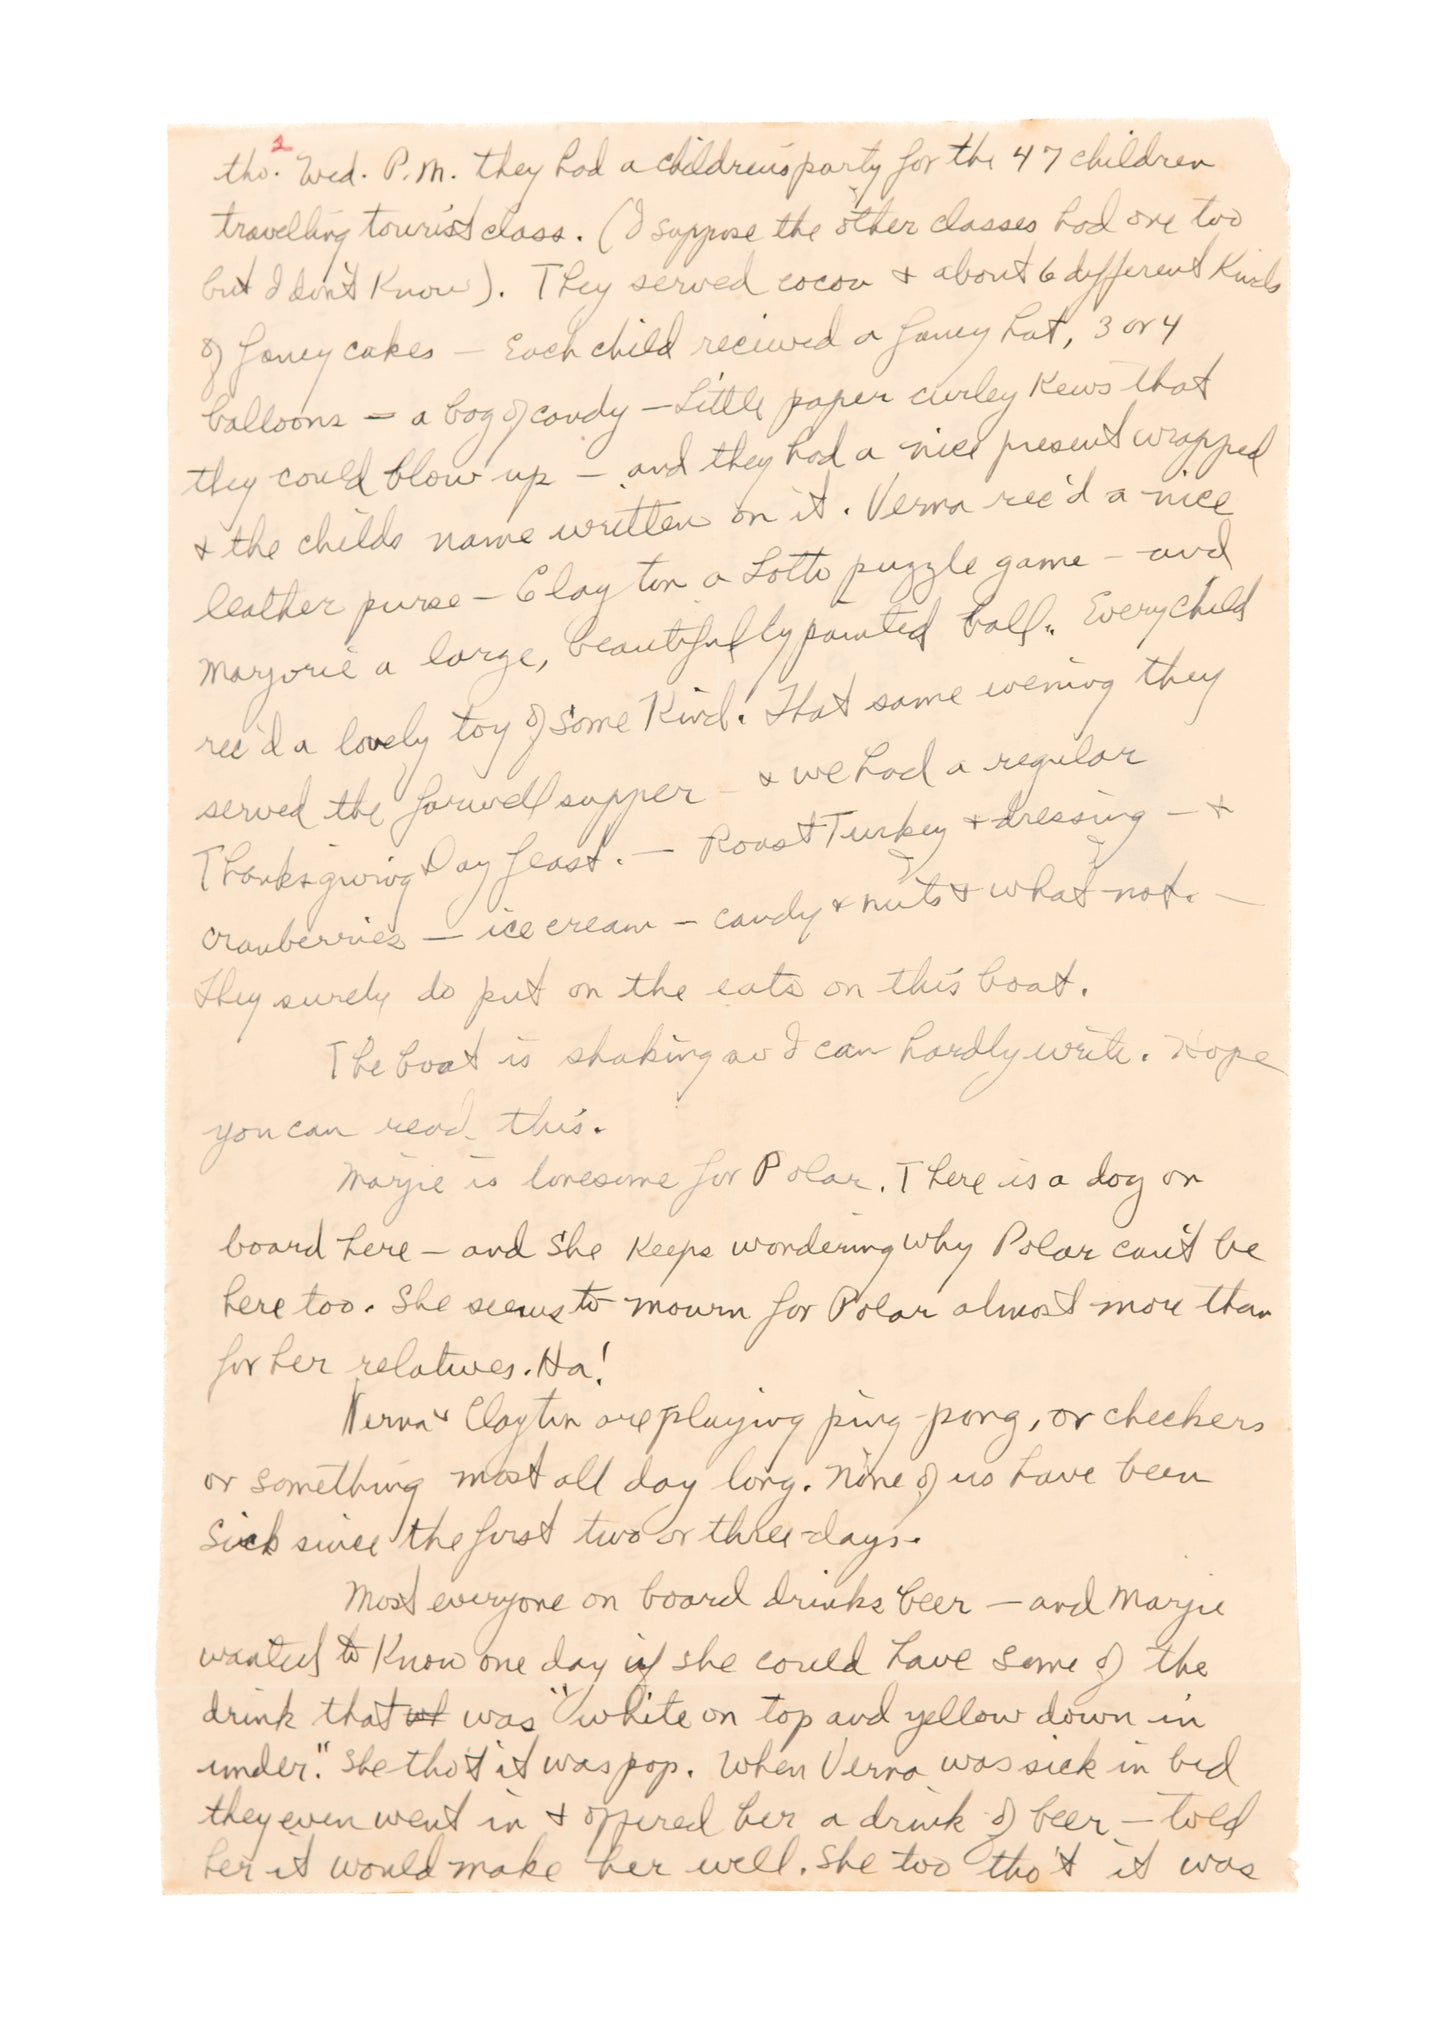 2
tho. Wed. P.M. they had a children's party for the 47 children
travelling tourist class. (I suppose the other classes had one too
but I don't Know). They served cocoa & about 6 different Kinds
of fancy cakes — Each child recieved a fancy hat, 3 or 4
balloons — a bag of candy — little paper curley Kews that
they could blow up — and they had a nice present wrapped
& the childs name written on it. Verna rec'd a nice
leather purse — Clayton a Lotto puzzle game — and
Marjorie a large, beautifully painted ball. Every child
rec'd a lovely toy of some Kind. That same evening they
served the farwell supper — & we had a regular
Thanksgiving Day feast. — Roast Turkey & dressing — &
cranberries — ice cream — candy & nuts & what-not. —
They surely do put on the eats on this boat.
The boat is shaking so I can hardly write. Hope
you can read this.
Marjie is lonesome for Polar. There is a dog on
board here — and she Keeps wondering why Polar can't be
here too. She seems to mourn for Polar almost more than
for her relatives. Ha!
Verna & Clayton are playing ping-pong, or checkers
or something most all day long. None of us have been
sick since the first two or three days.
Most everyone on board drinks beer — and Marjie
wanted to Know one day if she could have some of the
drink that was "white on top and yellow down in
under." She tho't it was pop. When Verna was sick in bed
they even went in & offered her a drink of beer — told
her it would make her well. She too tho't it was